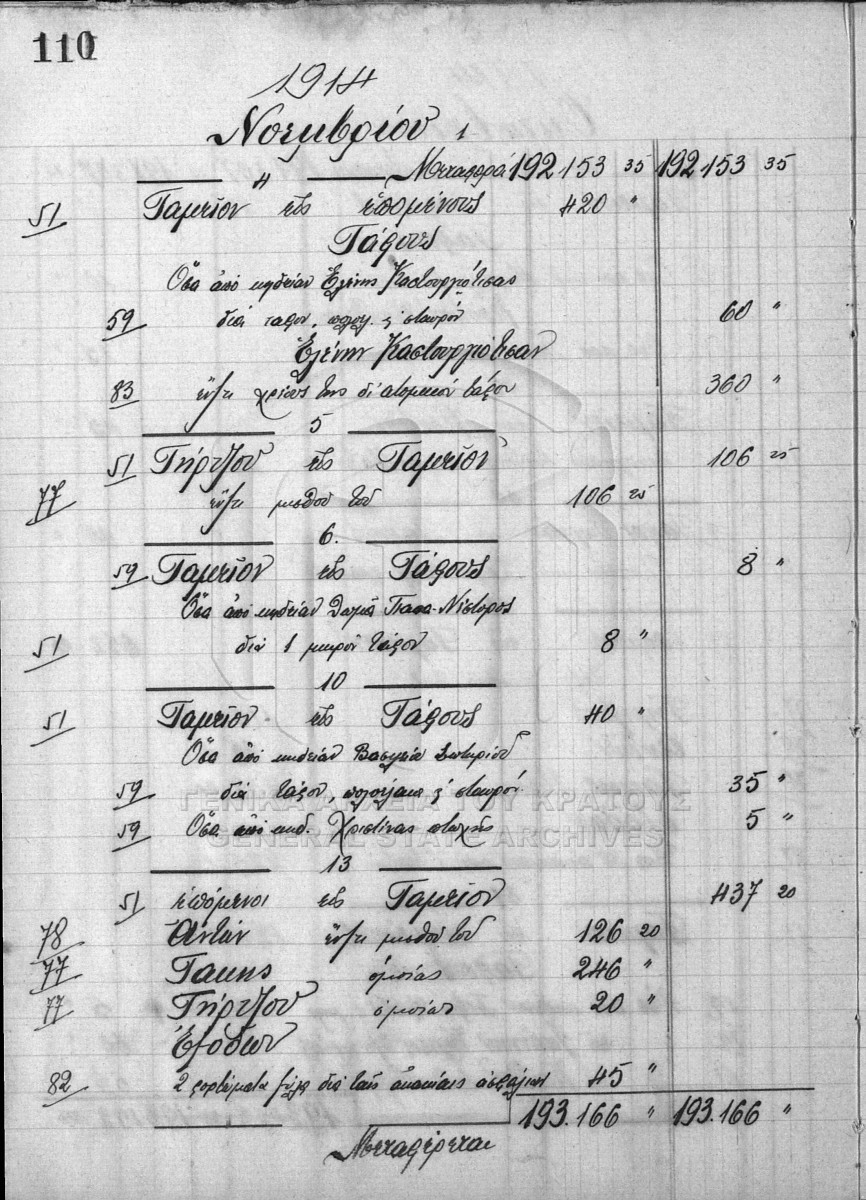 110
1914
Νοεμβρίου 1
Μεταφορά 192 153 35 192 153 35
4
51 Ταμεῖον εἰς ἑπομένους 420 "
Τάφους
Ὅσα ἀπὸ κηδείαν Ἑλένης
59 διὰ ταφον, & σταυρόν 60 "
Ἑλένην
83 ἔναντι χρέους της δι' ατομικόν τάφον 360 "
5
51 Γκήρτζου εἰς Ταμεῖον 106 25
77 ἔναντι μισθοῦ του 106 25
6.
59 Ταμεῖον εἰς Τάφους 8 "
Ὅσα ἀπὸ κηδείαν Θωμᾶ Παπα-Νέστορος
51 διὰ 1 μικρὸν τάφον 8 "
10
51 Ταμεῖον εἰς Τάφους 40 "
Ὅσα ἀπὸ κηδείαν Βασιλείου Σωτηρίου
59 διὰ τάφον, & σταυρόν 35 "
59 Ὅσα ἀπὸ κηδ. Χριστίνας πτωχῆς 5 "
13
51 ἑπόμενοι εἰς Ταμεῖον 437 20
78 Ἀντὰν ἔναντι μισθοῦ του 126 20
77 Τακης ὁμοίως 246 "
77 Γκήρτζου ὁμοίως 20 "
Ἐξόδων
82 2 φορτώματα ξύλα διὰ τὰς 45 "
193.166 " 193.166 "
Μεταφέρεται
ΓΕΝΙΚΑ ΑΡΧΕΙΑ ΤΟΥ ΚΡΑΤΟΥΣ
GENERAL STATE ARCHIVES